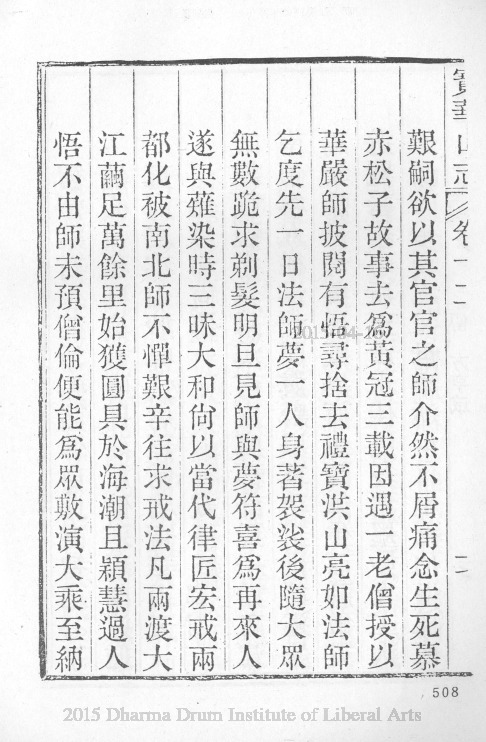 寶華山志 卷十二 二
艱嗣欲以其官官之師介然不屑痛念生死慕
赤松子故事去爲黃冠三載因遇一老僧授以
華嚴師披閱有悟尋捨去禮寶洪山亮如法師
乞度先一日法師夢一人身著袈裟後隨大眾
無數跪求剃髮明旦見師與夢符喜爲再來人
遂與薙染時三昧大和尙以當代律匠宏戒兩
都化被南北師不憚艱辛往求戒法凡兩渡大
江繭足萬餘里始獲圓具於海潮且穎慧過人
悟不由師未預僧倫便能爲眾敷演大乘至納
508
2015 Dharma Drum Institute of Liberal Arts